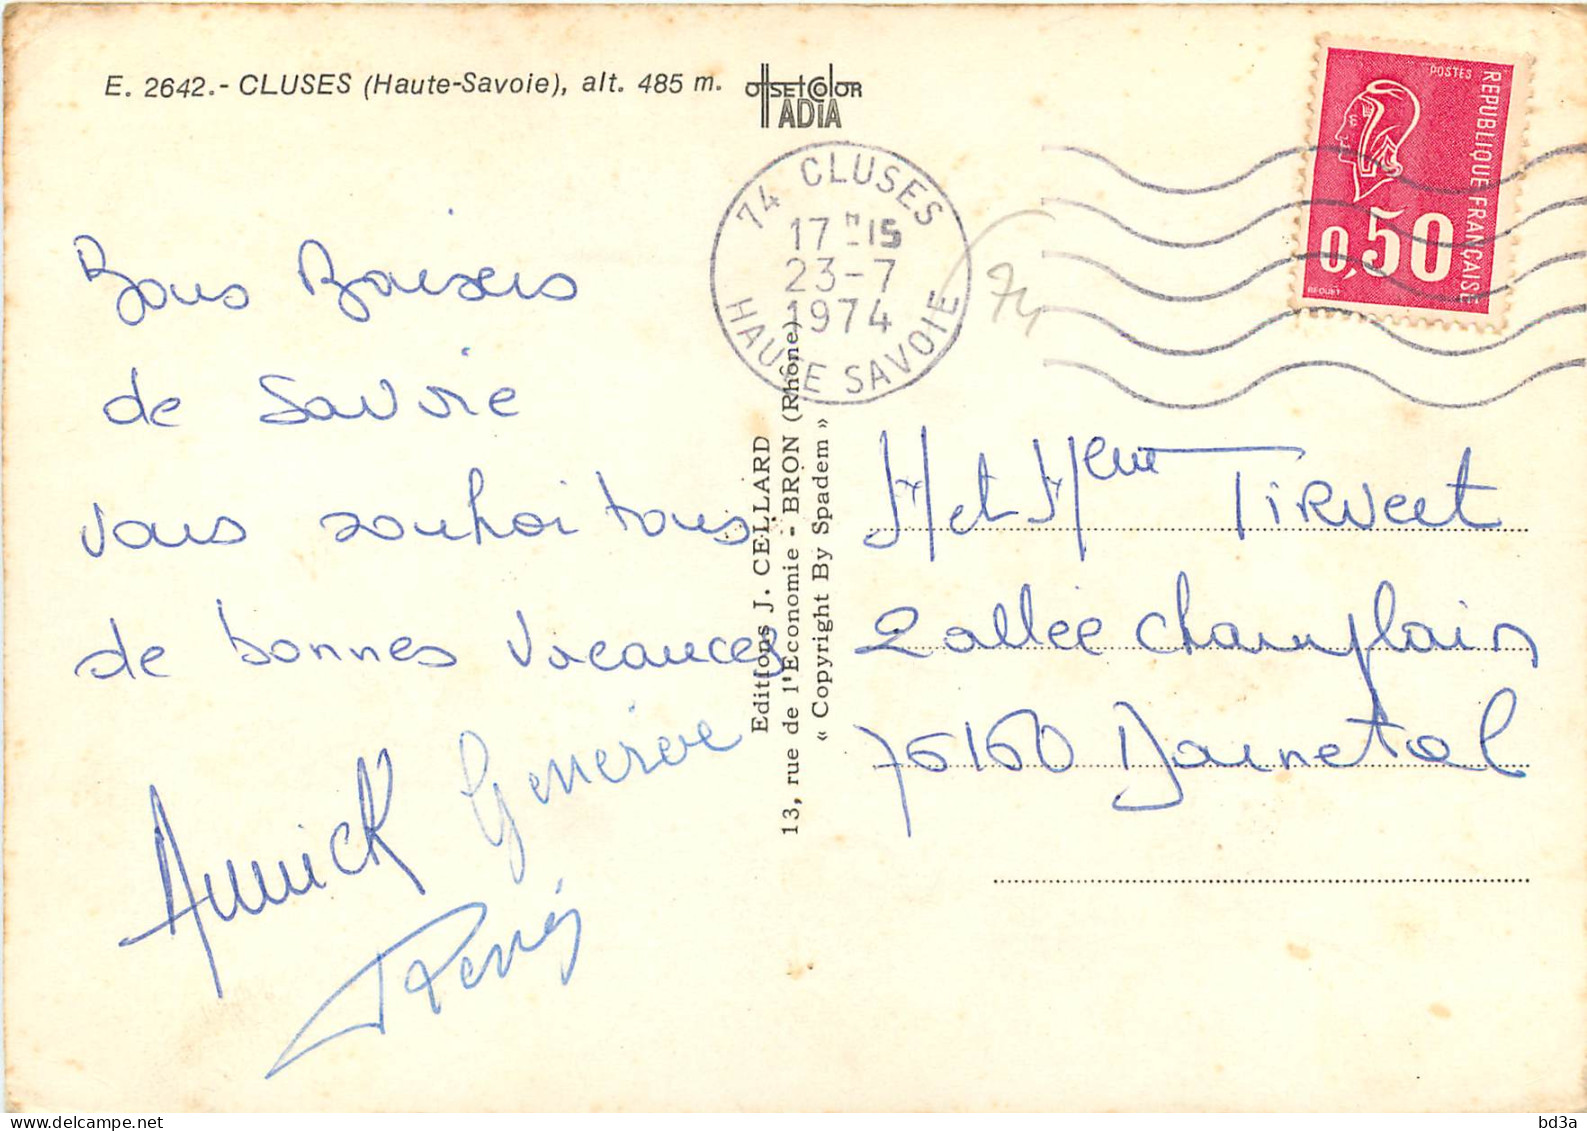 E. 2642.- CLUSES (Haute-Savoie), alt. 485 m.
OffSETColOR
ADIA
POSTES
REPUBLIQUE FRANÇAISE
0,50
BEQUET
74 CLUSES
17H-15
23-7
1974
HAUTE SAVOIE
74
Bons Baisers
de Savoie
vous souhaitons
de bonnes vacances
Annick
Geneviève
René
Editions J. CELLARD
13, rue de l'Economie - BRON (Rhône)
« Copyright By Spadem »
M et Mme TIRVERT
2 allée Champlain
76160 Darnetal
bd3a